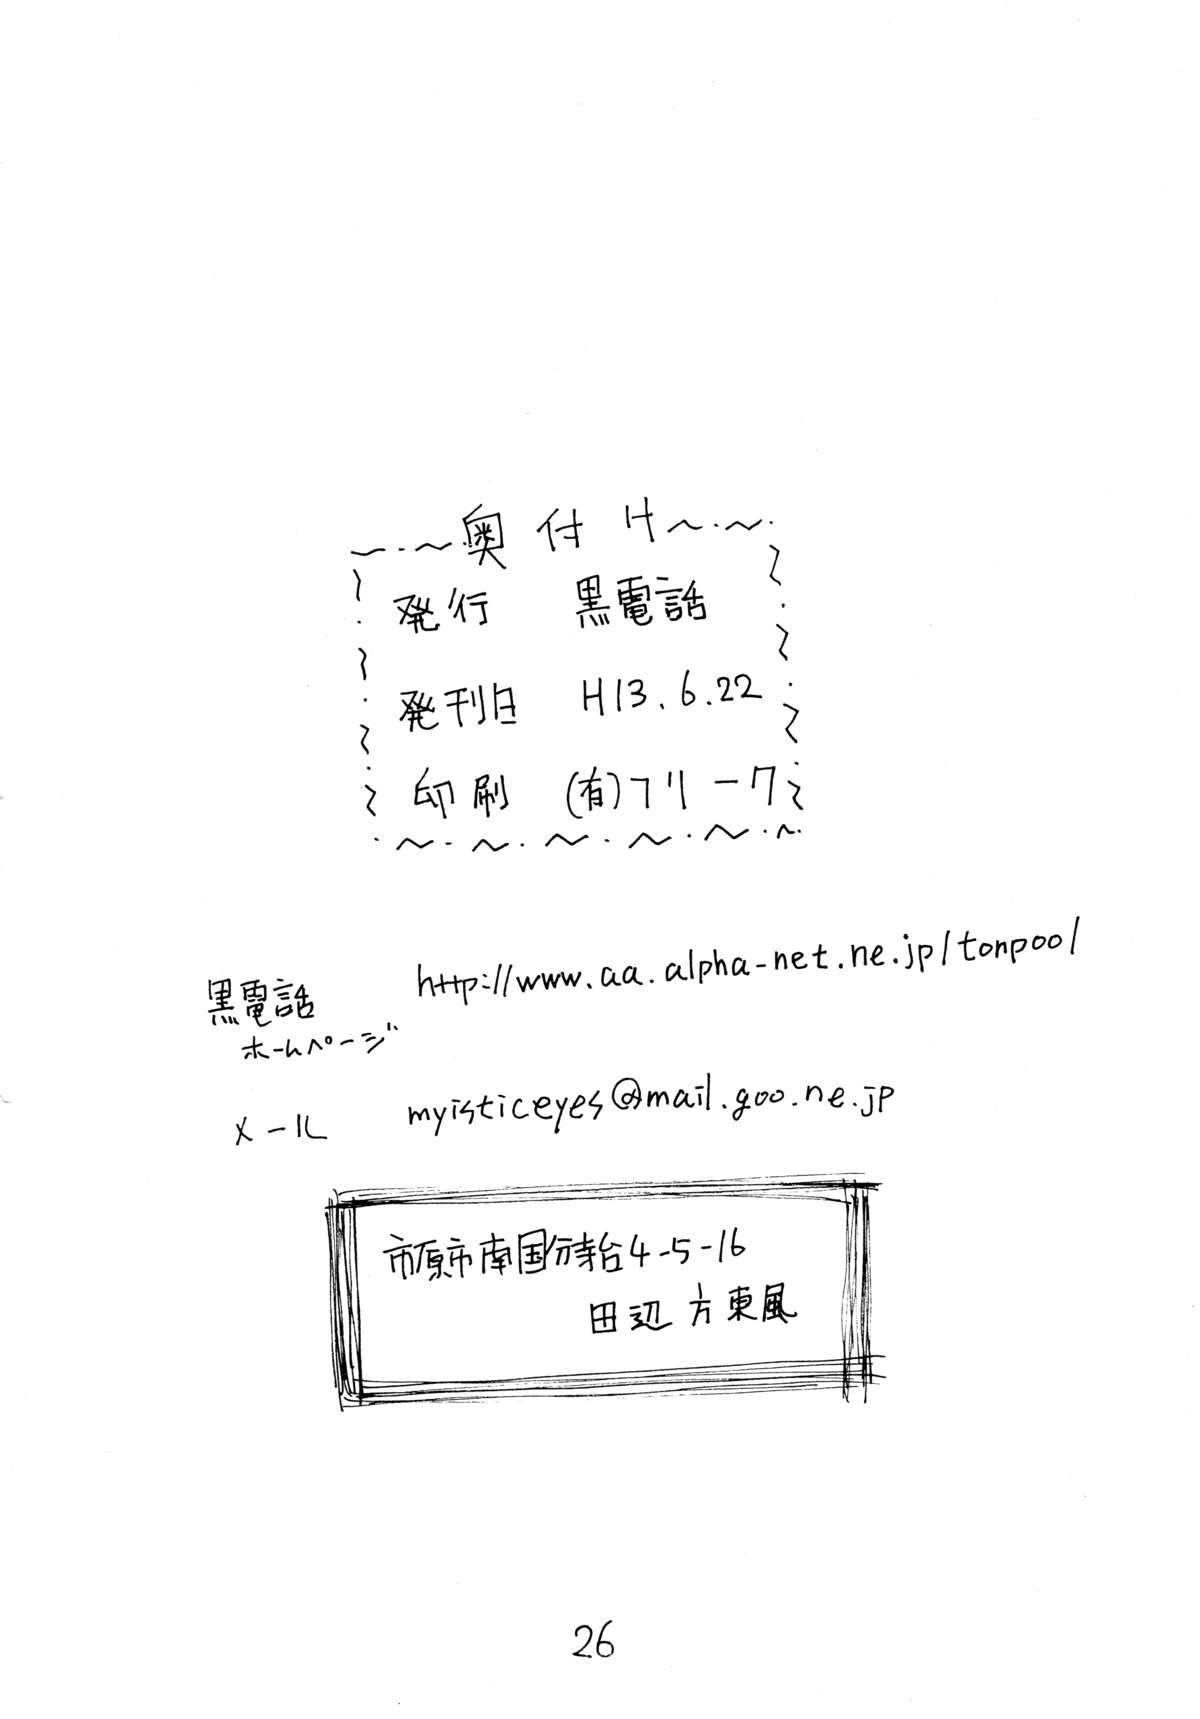 奥付け
発行 黒電話
発刊日 H13.6.22
印刷 (有)フリーク
黒電話 http://www.aa.alpha-net.ne.jp/tonpoo/
ホームページ
メール myisticeyes@mail.goo.ne.jp
市原市南国分寺台4-5-16
田辺方東風
26